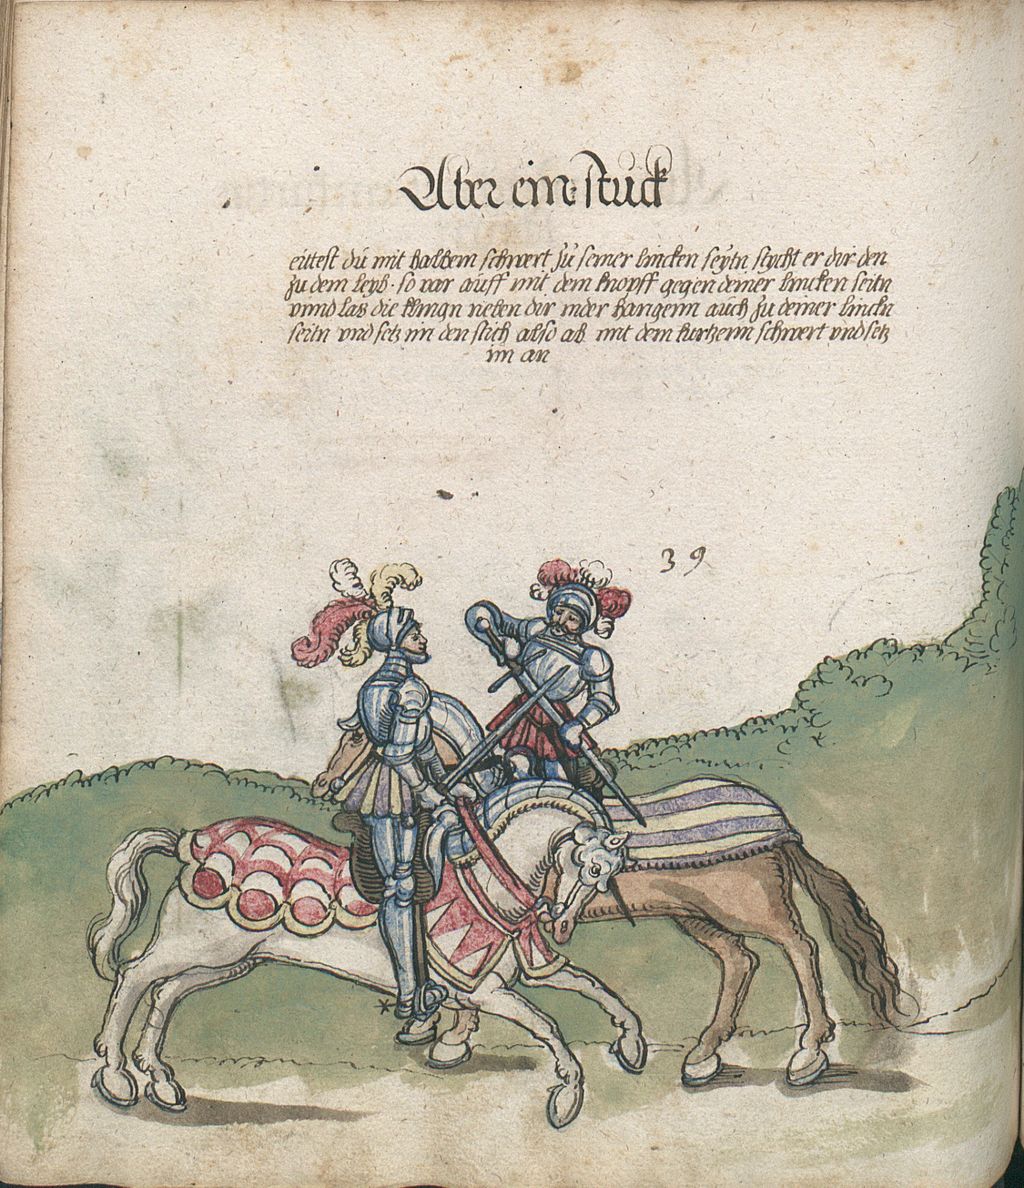 Aber ein stuck
eittest du mit halbem schwert zu seiner lincken seytn sticht er dir den
zu dem leyb · so var auff mit dem knopff gegen deiner lincken seitn
vnnd las die klingn neben dir nider hangenn auch zu deiner linckn
seitn vnd setz im den stich also ab mit dem kurtzenn schwert vnd setz
im an
39